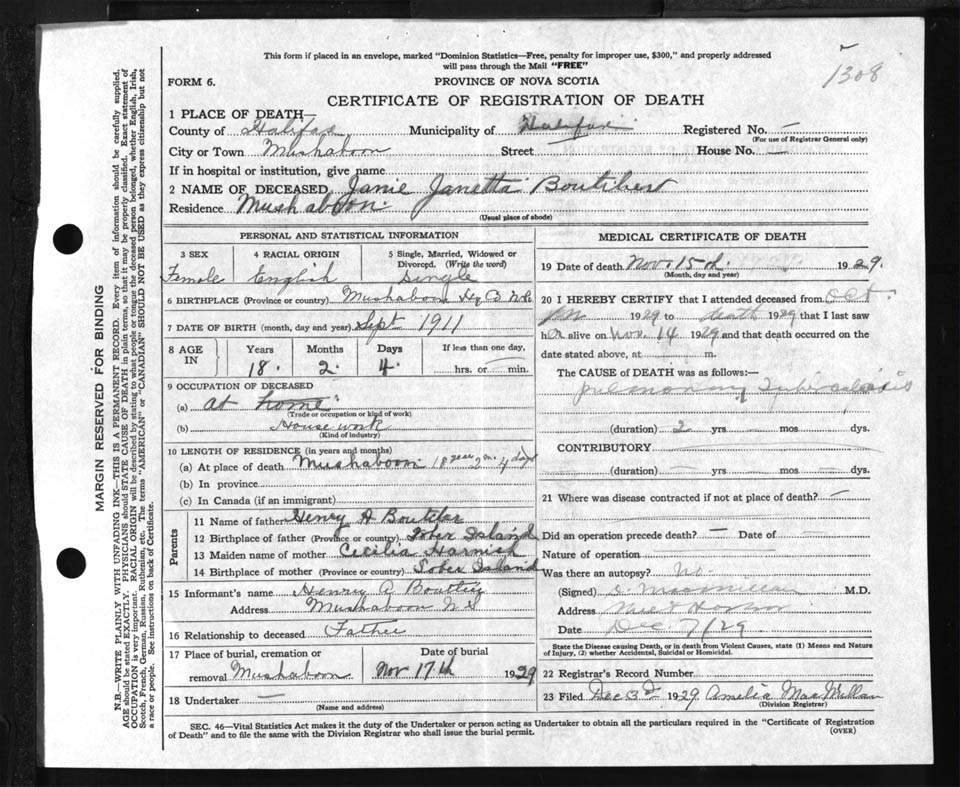 1308
This form if placed in an envelope, marked "Dominion Statistics—Free, penalty for improper use, $300," and properly addressed
will pass through the Mail "FREE"
FORM 6.
PROVINCE OF NOVA SCOTIA
CERTIFICATE OF REGISTRATION OF DEATH
1 PLACE OF DEATH—
County of Halifax Municipality of Halifax Registered No. —
(For use of Registrar General only)
City or Town Mushaboom Street — House No. —
If in hospital or institution, give name
2 NAME OF DECEASED Janie Janetta Boutilier
Residence Mushaboom.
(Usual place of abode)
PERSONAL AND STATISTICAL INFORMATION
3 SEX Female
4 RACIAL ORIGIN English
5 Single, Married, Widowed or Divorced. (Write the word) Single
6 BIRTHPLACE (Province or country) Mushaboom Co N.S.
7 DATE OF BIRTH (month, day and year) Sept 1911
8 AGE IN
Years Months Days If less than one day,
18. 2. 4. hrs. or min.
9 OCCUPATION OF DECEASED
(a) at home
(Trade or occupation or kind of work)
(b) House work
(Kind of industry)
10 LENGTH OF RESIDENCE (in years and months)
(a) At place of death Mushaboom 18 year 2 m. 4 days
(b) In province
(c) In Canada (if an immigrant)
Parents
11 Name of father Henry A Boutilier
12 Birthplace of father (Province or country) Sober Island
13 Maiden name of mother Cecilia Harnish
14 Birthplace of mother (Province or country) Sober Island
15 Informant's name Henry A
Address Mushaboom N.S
16 Relationship to deceased Father
17 Place of burial, cremation or removal Mushaboom
Date of burial
Nov 17th 1929
18 Undertaker —
(Name and address)
MEDICAL CERTIFICATE OF DEATH
19 Date of death Nov. 15th. 1929.
(Month, day and year)
20 I HEREBY CERTIFY that I attended deceased from Oct.
1929 to death 1929 that I last saw
her alive on Nov. 14 1929 and that death occurred on the
date stated above, at m.
The CAUSE of DEATH was as follows:—
pulmonary tuberculosis
(duration) 2 yrs mos. dys.
CONTRIBUTORY
(duration) yrs. mos. dys.
21 Where was disease contracted if not at place of death? —
Did an operation precede death? — Date of —
Nature of operation
Was there an autopsy? No.
(Signed) MacMillan M.D.
Address Harbor
Date Dec. 7/29
State the Disease causing Death, or in death from Violent Causes, state (1) Means and Nature
of Injury, (2) whether Accidental, Suicidal or Homicidal.
22 Registrar's Record Number
23 Filed Dec 3rd 1929 Amelia MacMillan
(Division Registrar)
SEC. 46—Vital Statistics Act makes it the duty of the Undertaker or person acting as Undertaker to obtain all the particulars required in the "Certificate of Registration
of Death" and to file the same with the Division Registrar who shall issue the burial permit.
(OVER)
MARGIN RESERVED FOR BINDING
N.B.—WRITE PLAINLY WITH UNFADING INK—THIS IS A PERMANENT RECORD. Every item of information should be carefully supplied.
AGE should be stated EXACTLY. PHYSICIANS should STATE CAUSE OF DEATH in plain terms, so that it may be properly classified. Exact statement of
OCCUPATION is very important. RACIAL ORIGIN will be described by stating to what people or tongue the deceased person belonged, whether English, Irish,
Scotch, French, German, Russian, Ruthenian, etc. The terms "AMERICAN" or "CANADIAN" SHOULD NOT BE USED as they express citizenship but not
a race or people. See instructions on back of Certificate.